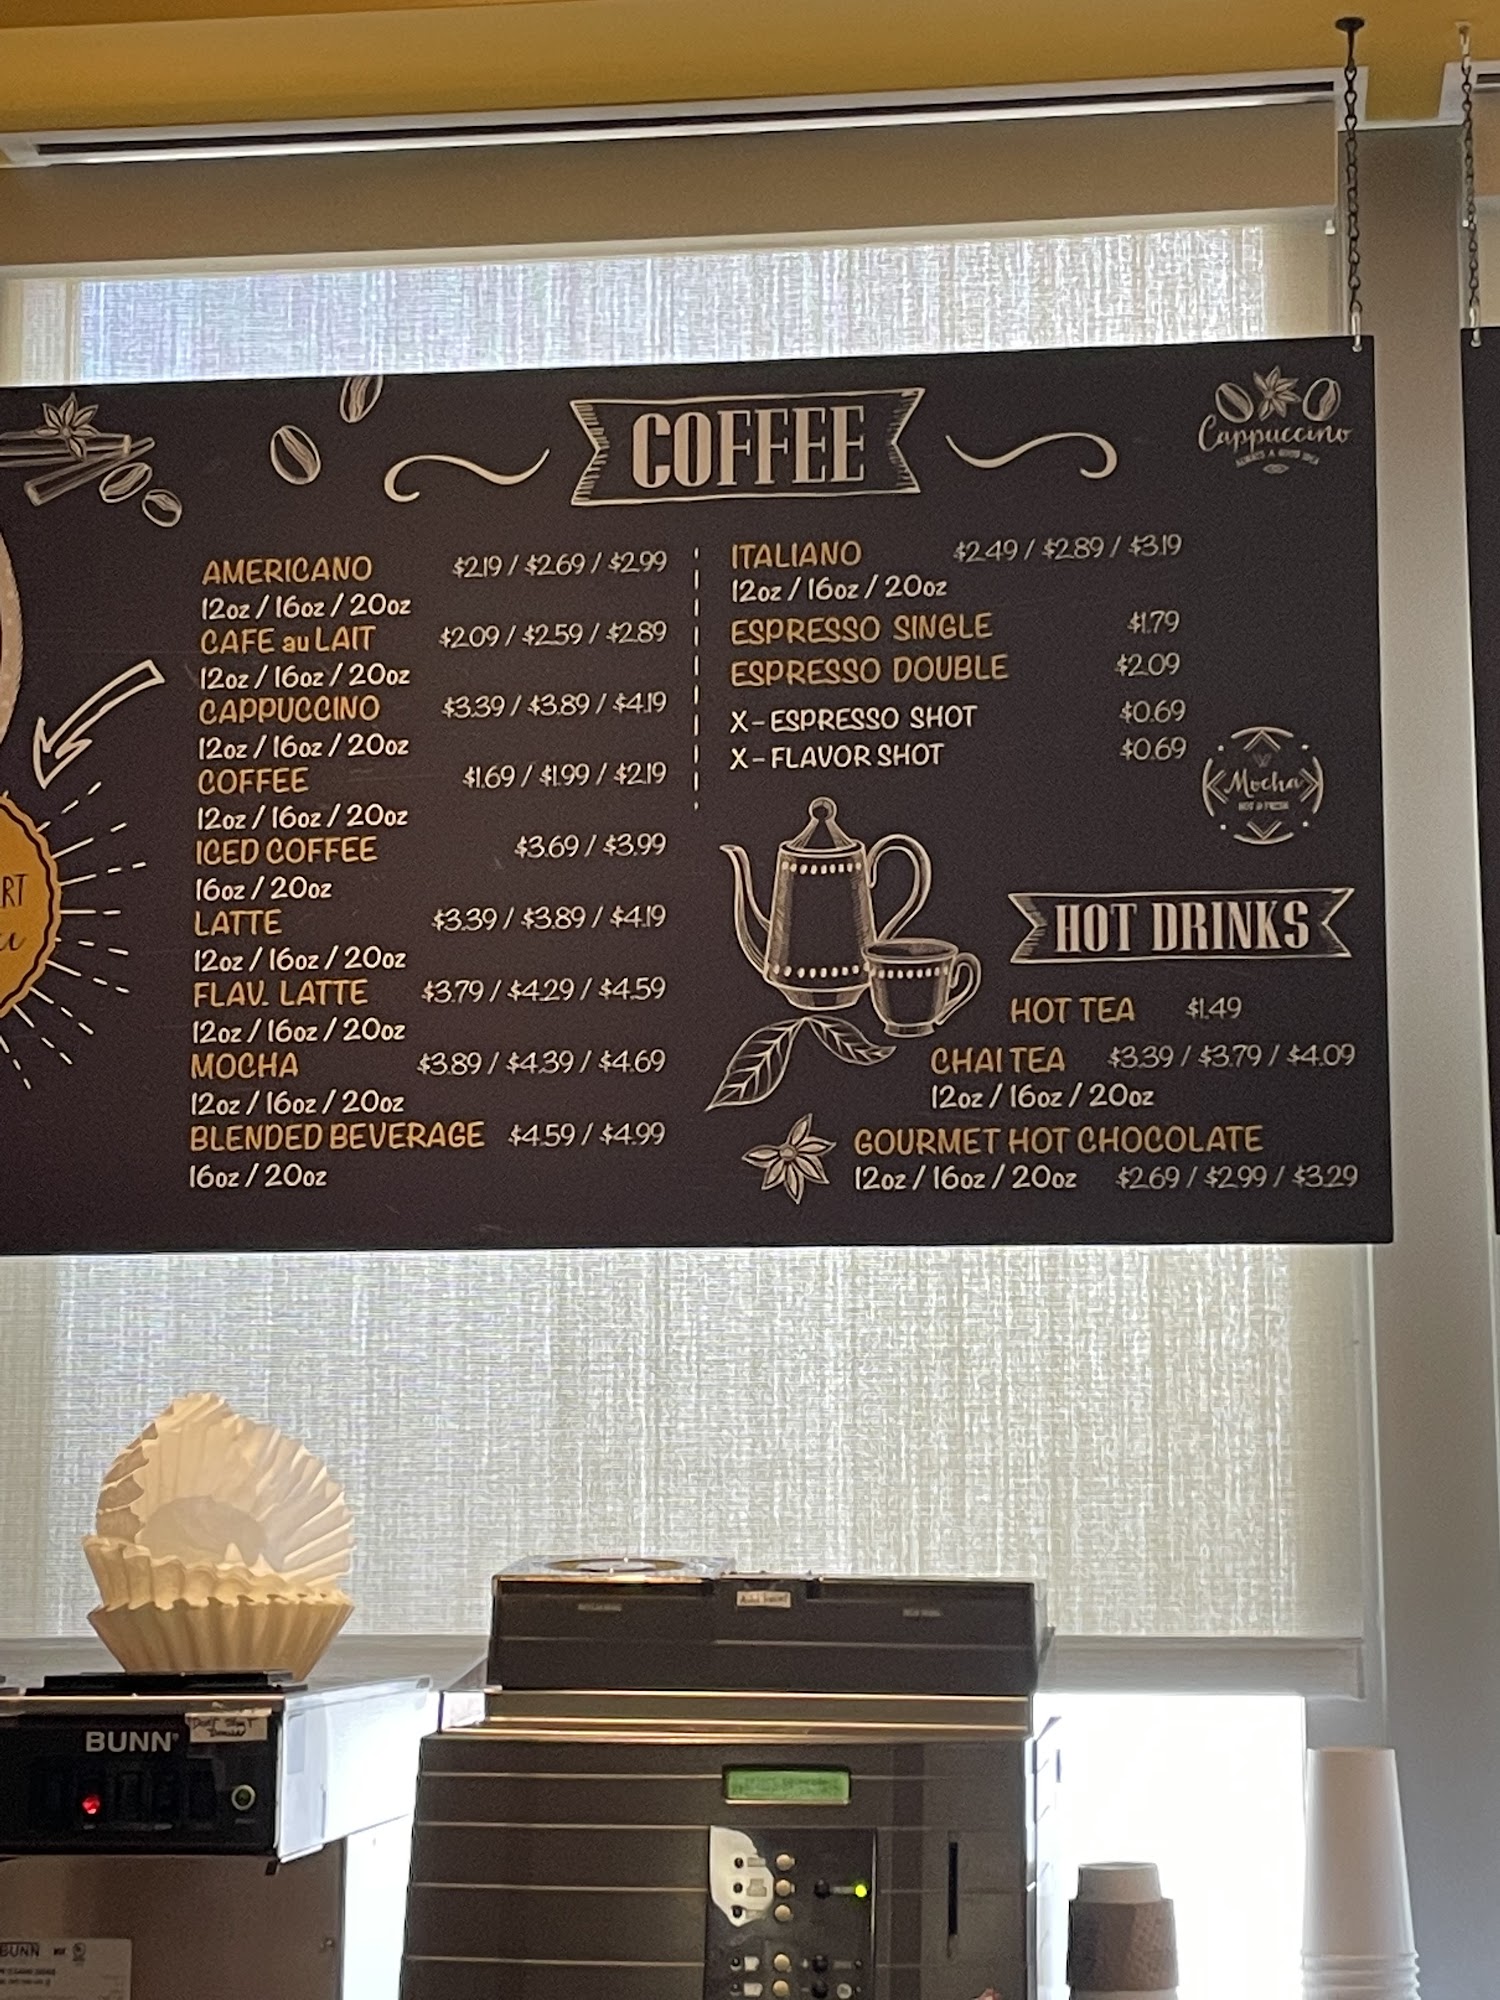 COFFEE
Cappuccino
ALWAYS A GOOD IDEA
AMERICANO $2.19 / $2.69 / $2.99
12oz / 16oz / 20oz
CAFE au LAIT $2.09 / $2.59 / $2.89
12oz / 16oz / 20oz
CAPPUCCINO $3.39 / $3.89 / $4.19
12oz / 16oz / 20oz
COFFEE $1.69 / $1.99 / $2.19
12oz / 16oz / 20oz
ICED COFFEE $3.69 / $3.99
16oz / 20oz
LATTE $3.39 / $3.89 / $4.19
12oz / 16oz / 20oz
FLAV. LATTE $3.79 / $4.29 / $4.59
12oz / 16oz / 20oz
MOCHA $3.89 / $4.39 / $4.69
12oz / 16oz / 20oz
BLENDED BEVERAGE $4.59 / $4.99
16oz / 20oz
ITALIANO $2.49 / $2.89 / $3.19
12oz / 16oz / 20oz
ESPRESSO SINGLE $1.79
ESPRESSO DOUBLE $2.09
X-ESPRESSO SHOT $0.69
X-FLAVOR SHOT $0.69
Mocha
HOT & FRESH
HOT DRINKS
HOT TEA $1.49
CHAI TEA $3.39 / $3.79 / $4.09
12oz / 16oz / 20oz
GOURMET HOT CHOCOLATE
12oz / 16oz / 20oz $2.69 / $2.99 / $3.29
RT
BUNN
BUNN